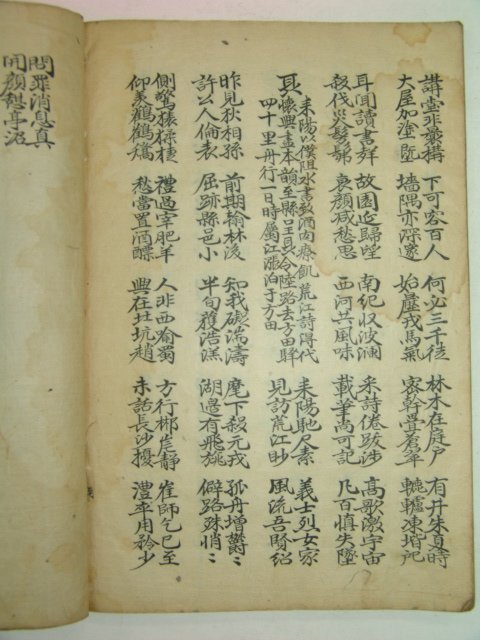 講堂非曩構 下可容百人 何必三千徒 林木在庭戶 有井朱夏時
大屋加塗墍 墻隅亦深邃 始壓戎馬氣 密幹疊蒼翠 轆轤凍堦戺
耳聞讀書聲 故園延歸望 南紀収波瀾 采詩倦跋涉 高歌激宇宙
殺伐災髣髴 衰顔減愁思 西河共風味 載筆尚可記 凡百慎失墜
耒陽以僕阻水書致酒肉療飢荒江詩得代
聶懷興盡本韻至縣呈聶令陸路去方田驛
四十里舟行一日時屬江漲泊于方田 耒陽馳尺素 義士烈女家
見訪荒江眇 風流吾賢紹
昨見狄相孫 前期翰林後 知我礙湍濤 麾下殺元戎 孤舟增欝〻
許公人倫表 屈跡縣邑小 半旬獲浩溔 湖邉有飛旐 僻路殊悄〻
側驚猿猱捷 禮過宰肥羊 人非西喻蜀 方行郴岸靜 崔師乞已至
仰羨鸛鶴矯 愁當置酒醥 興在北坑趙 未話長沙擾 澧卒用矜少
問罪消息真
開顔憩亭沼